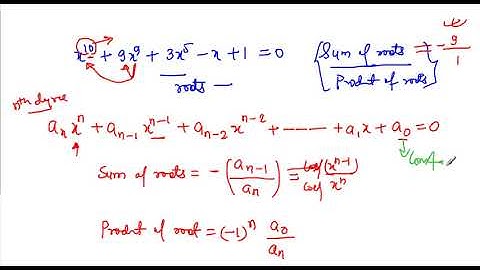 x^10 + 9x^9 + 3x^5 - x + 1 = 0
roots
{ Sum of roots / Product of roots } = - 9/1
nth degree
a_n x^n + a_{n-1} x^{n-1} + a_{n-2} x^{n-2} + ----- + a_1 x + a_0 = 0
Sum of roots = - (a_{n-1} / a_n) = coef (x^{n-1}) / coef x^n
Product of root = (-1)^n a_0 / a_n